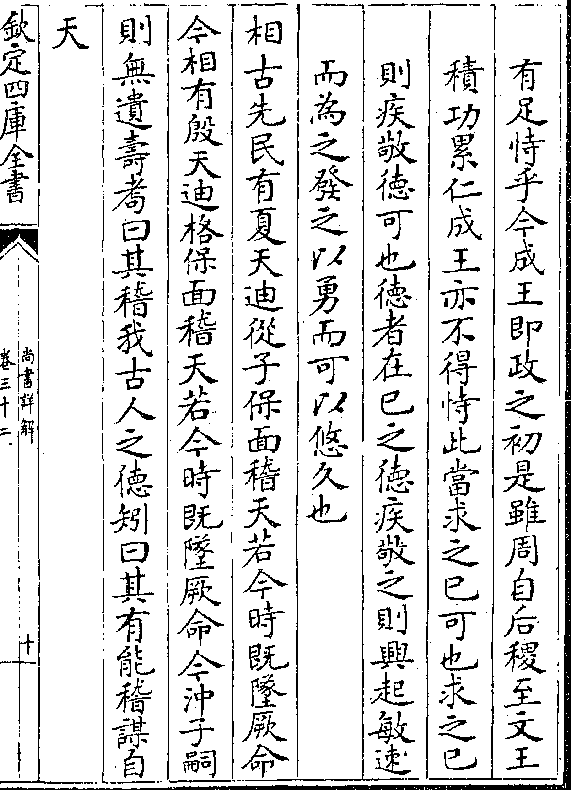 有足恃乎今成王即政之初是雖周自后稷至文王
積功累仁成王亦不得恃此當求之已可也求之已
則疾敬德可也德者在已之德疾敬之則興起敏速
而為之發之以勇而可以悠久也
相古先民有夏天迪從子保面稽天若今時既墜厥命
今相有殷天迪格保面稽天若今時既墜厥命今沖子嗣
則無遺壽耇曰其稽我古人之德矧曰其有能稽謀自
天
欽定四庫全書
尚書詳解
卷三十二
十